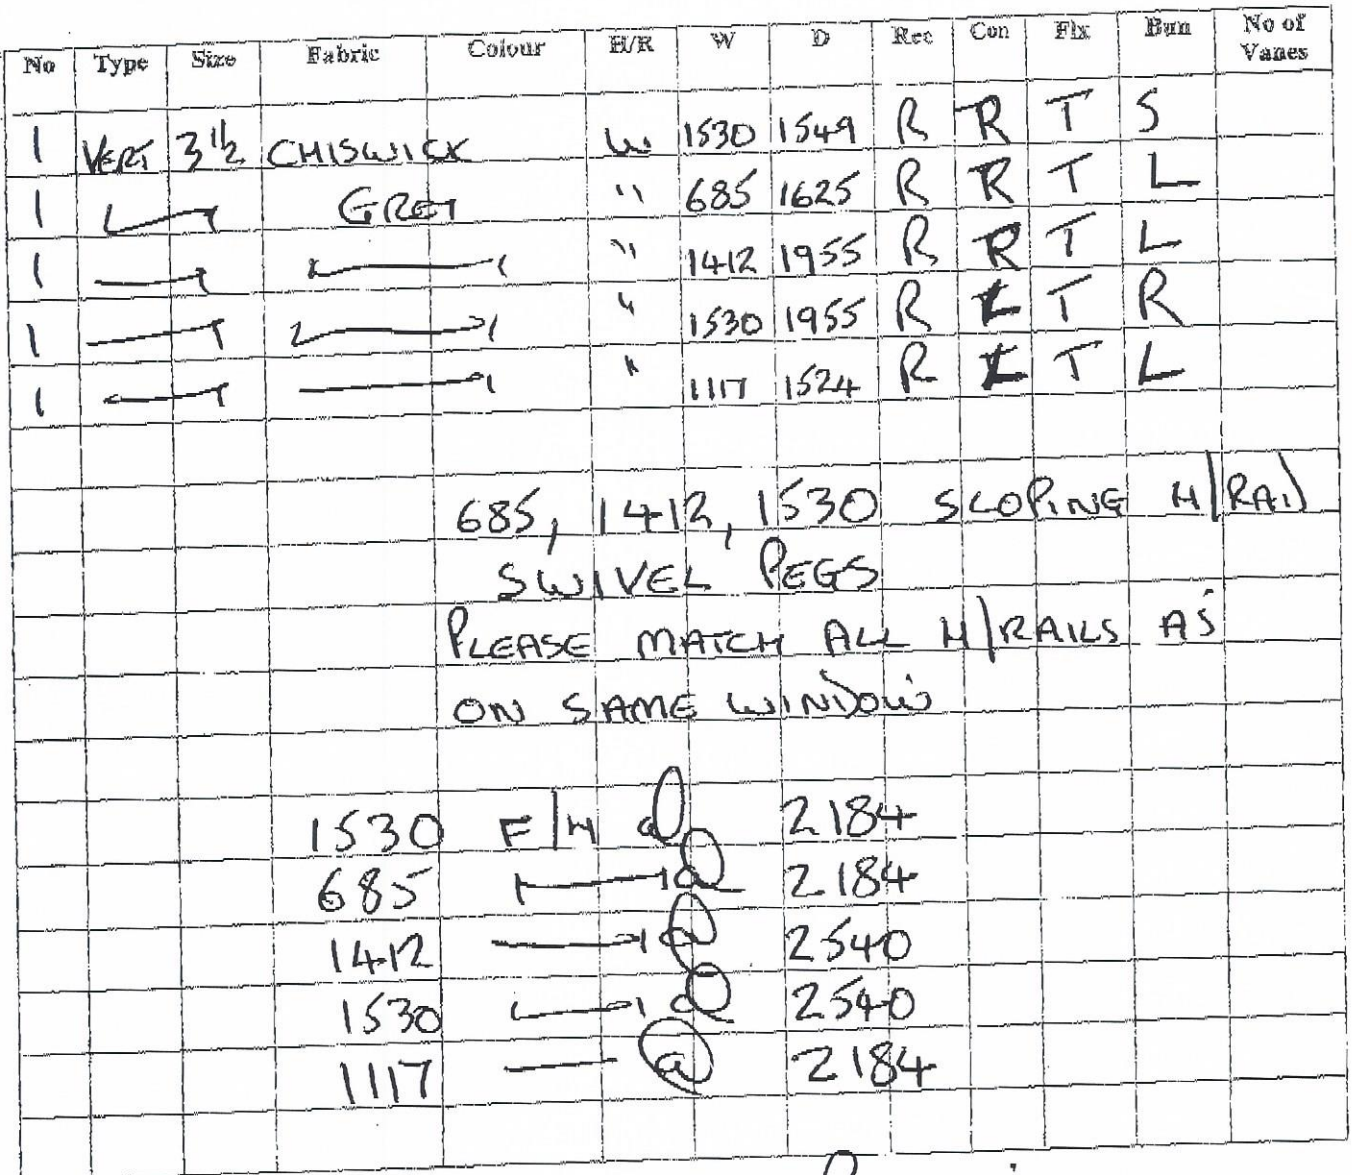 No Type Size Fabric Colour H/R W D Rec Con Fix Bun No of Vanes
1 VERT 3 1/2 CHISWICK W 1530 1549 R R T S
1 GREY " 685 1625 R R T L
1 " 1412 1955 R R T L
1 " 1530 1955 R L T R
1 " 1117 1524 R L T L
685, 1412, 1530 SLOPING H/RAIL
SWIVEL PEGS
PLEASE MATCH ALL H/RAILS AS
ON SAME WINDOW
1530 F/H @ 2184
685 @ 2184
1412 @ 2540
1530 @ 2540
1117 @ 2184